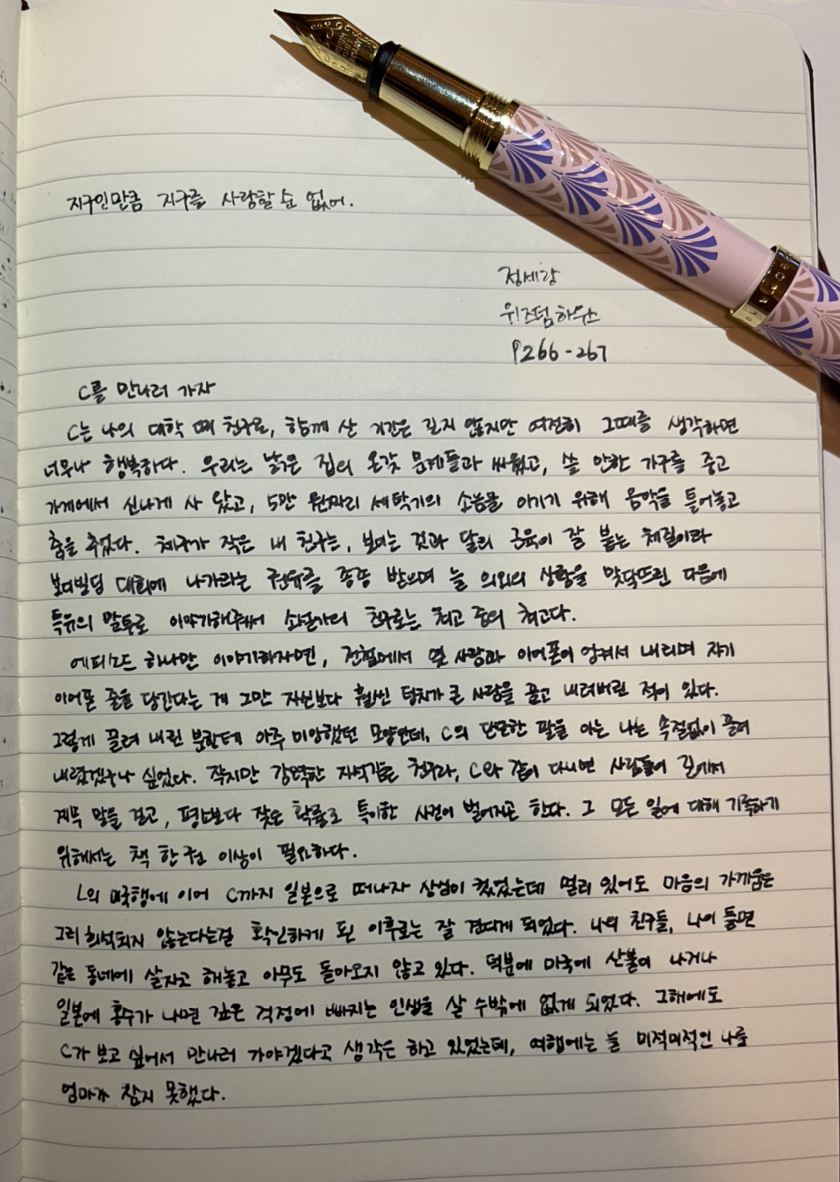 지구인만큼 지구를 사랑할 순 없어.
정세랑
위즈덤하우스
P266-267
C를 만나러 가자
C는 나의 대학 때 친구로, 함께 산 기간은 길지 않지만 여전히 그때를 생각하면
너무나 행복하다. 우리는 낡은 집의 온갖 문제들과 싸웠고, 쓸 만한 가구를 중고
가게에서 신나게 사 왔고, 5만 원짜리 세탁기의 소음을 이기기 위해 음악을 틀어놓고
춤을 추었다. 체구가 작은 내 친구는, 보이는 것과 달리 근육이 잘 붙는 체질이라
보디빌딩 대회에 나가라는 권유를 종종 받으며 늘 의외의 상황을 맞닥뜨린 다음에
특유의 말투로 이야기해주어서 소설가의 친구로는 최고 중의 최고다.
에피소드 하나만 이야기하자면, 전철에서 옆 사람과 이어폰이 엉켜서 내리며 자기
이어폰 줄을 당긴다는 게 그만 자신보다 훨씬 덩치가 큰 사람을 끌고 내려버린 적이 있다.
그렇게 끌려 내린 분한테 아주 미안했던 모양인데, C의 단단한 팔을 아는 나는 속절없이 끌려
내렸겠구나 싶었다. 작지만 강력한 자석같은 친구라, C와 같이 다니면 사람들이 길에서
계속 말을 걸고, 평소보다 잦은 확률로 특이한 사건이 벌어지곤 한다. 그 모든 일에 대해 기록하기
위해서는 책 한 권 이상이 필요하다.
L의 미국행에 이어 C까지 일본으로 떠나자 상심이 컸었는데 멀리 있어도 마음의 가까움은
그리 희석되지 않는다는걸 확인하게 된 이후로는 잘 견디게 되었다. 나의 친구들, 나이 들면
같은 동네에 살자고 해놓고 아무도 돌아오지 않고 있다. 덕분에 미국에 산불이 나거나
일본에 홍수가 나면 깊은 걱정에 빠지는 인생을 살 수밖에 없게 되었다. 그해에도
C가 보고 싶어서 만나러 가야겠다고 생각은 하고 있었는데, 여행에는 늘 미적미적인 나를
엄마가 참지 못했다.